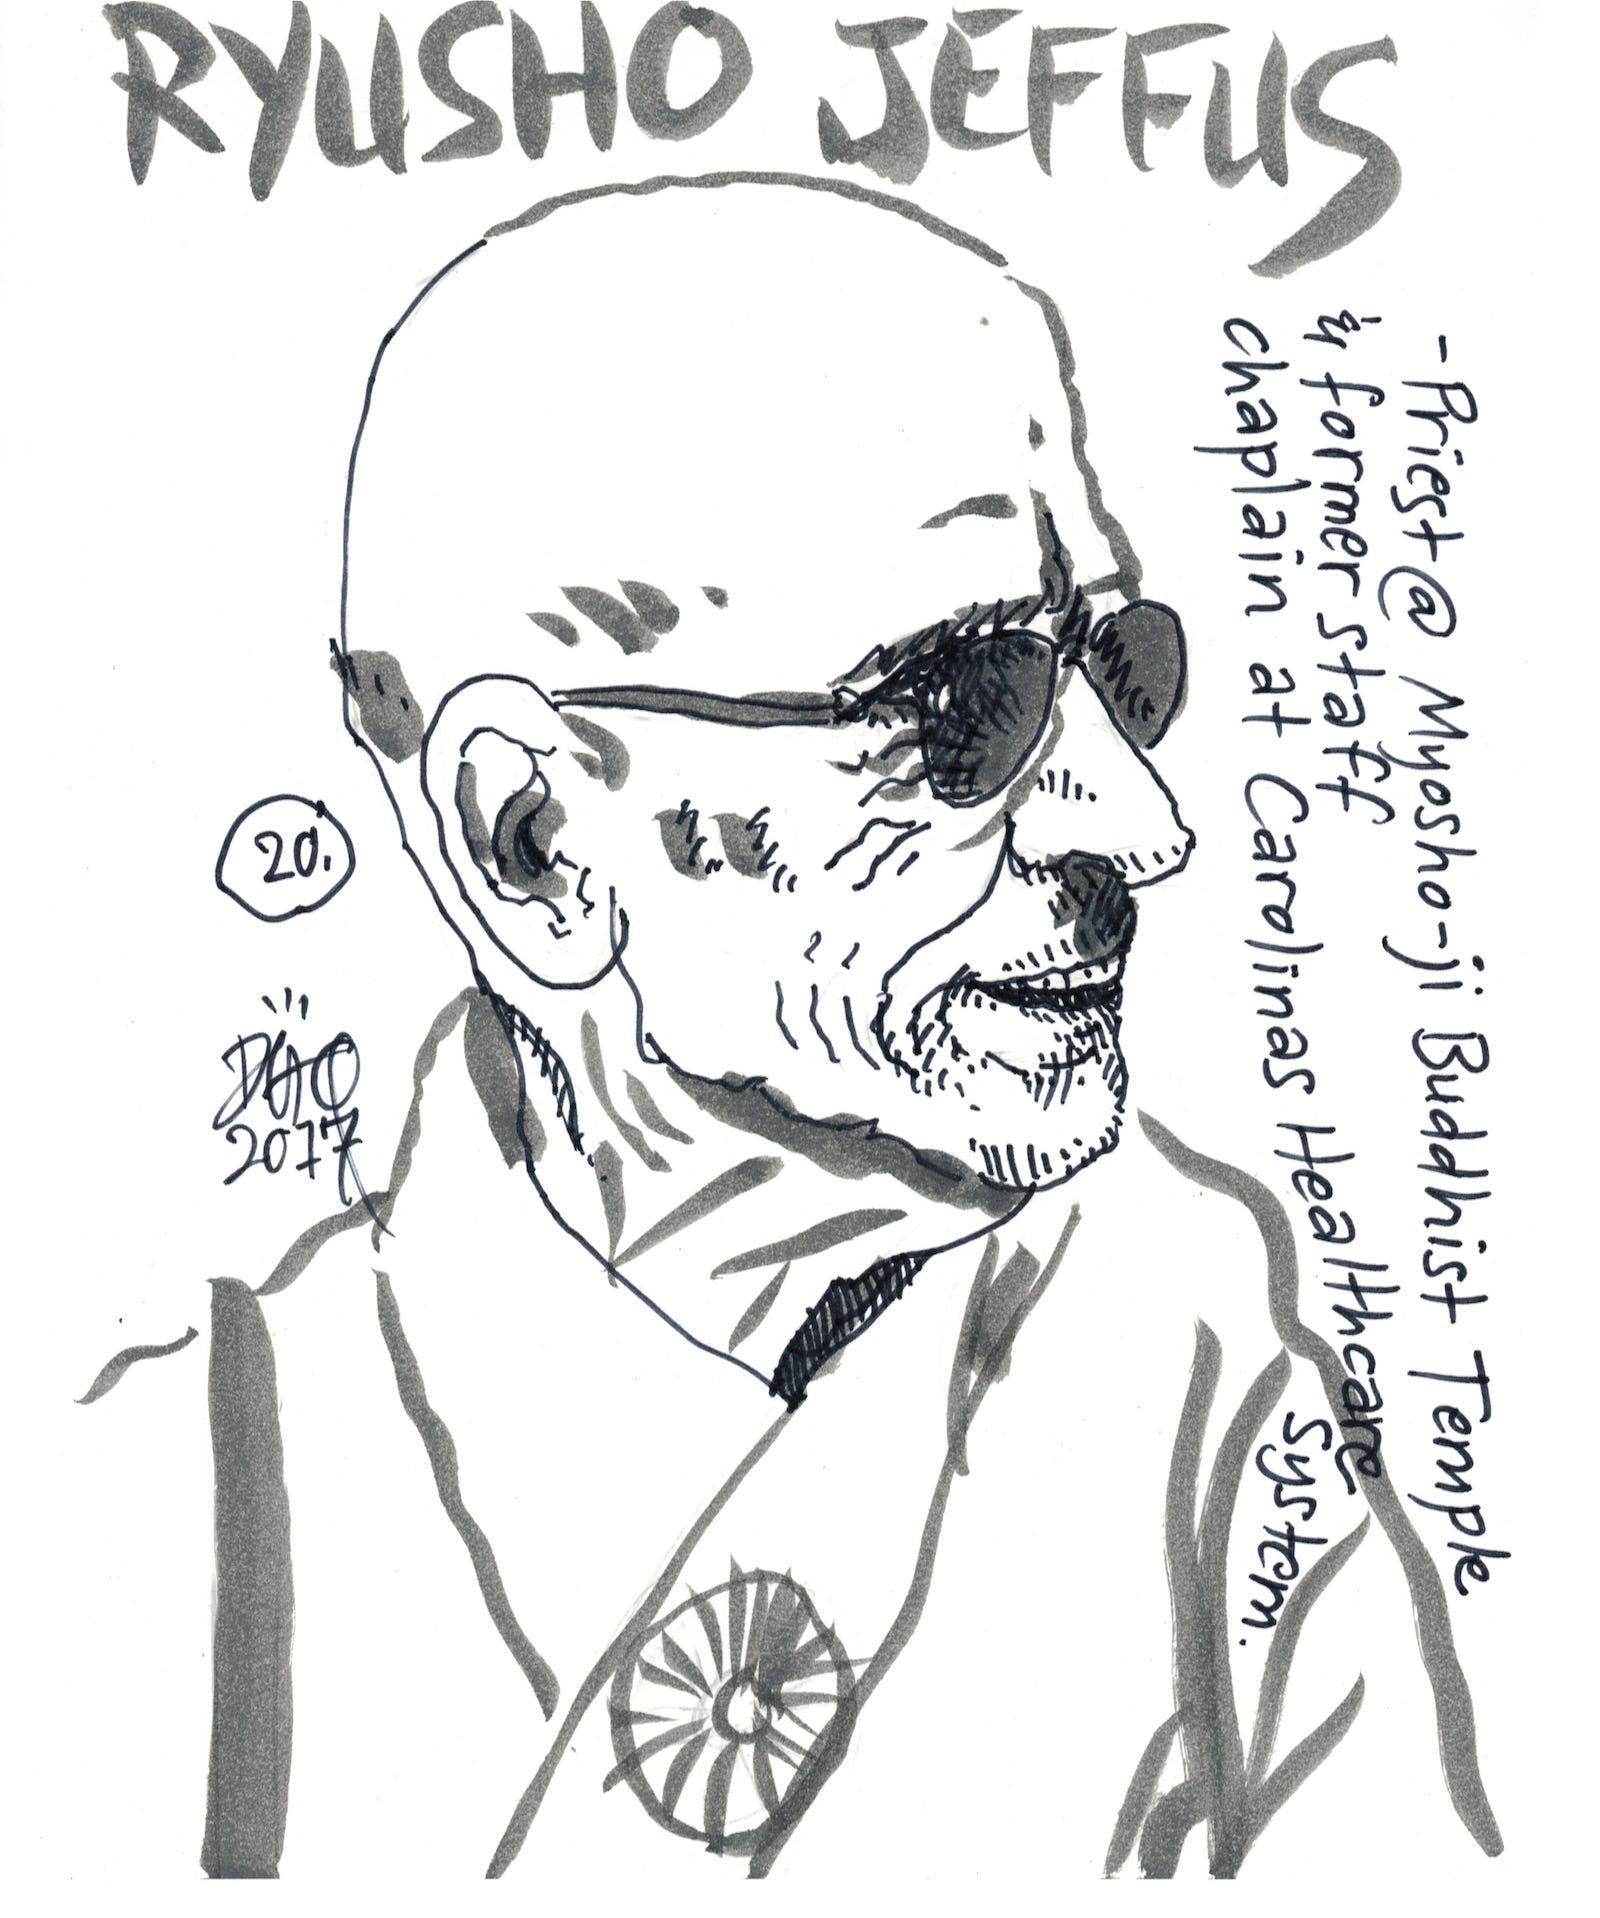 RYUSHO JEFFUS
-Priest @ Myosho-ji Buddhist Temple
& former staff
chaplain at Carolinas Healthcare
System.
20.
2017